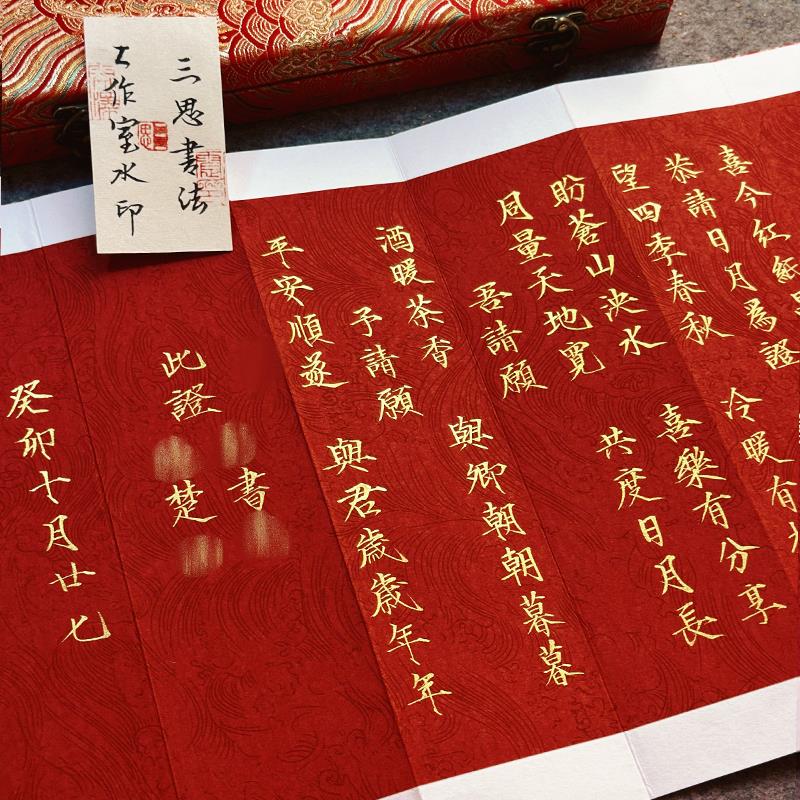 三思書法
工作室水印
喜今紅紙
恭請日月為證
望四季春秋 冷暖有
盼蒼山泱水 喜樂有分享
同量天地寬 共度日月長
吾請願
酒暖茶香 與卿朝朝暮暮
予請願
平安順遂 與君歲歲年年
書
此證 楚
癸卯十月廿七